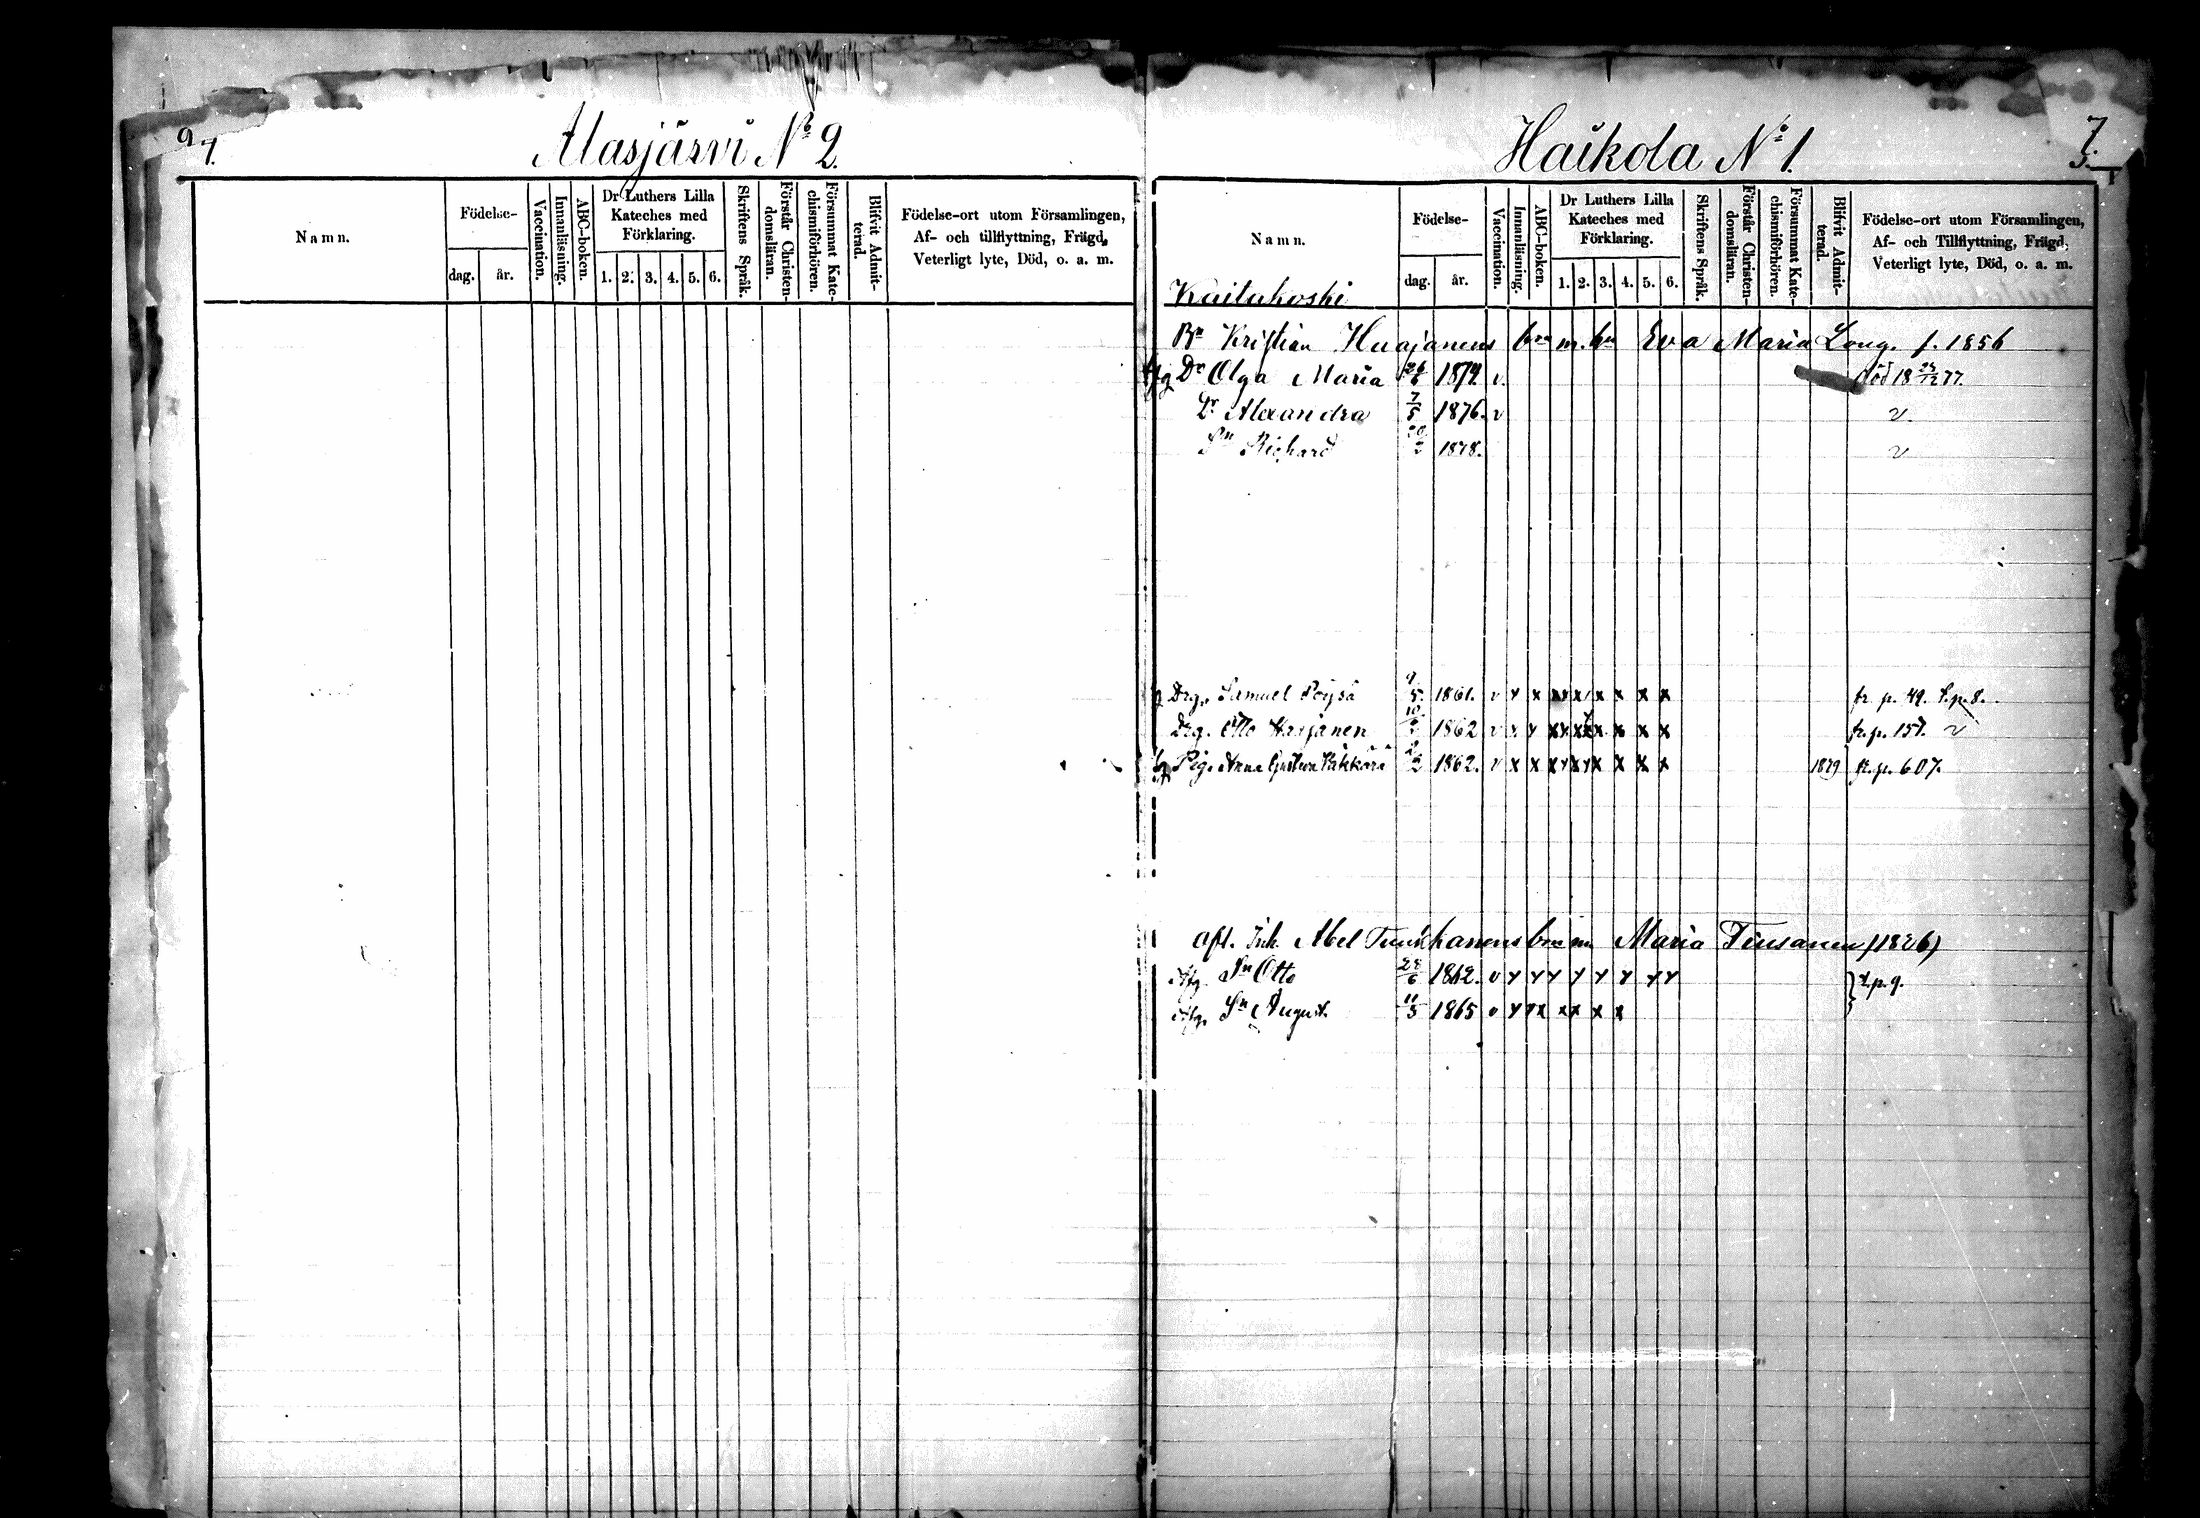 Alasjärvi No 2.
Namn.
Födelse-
dag. år.
Vaccination.
Innanläsning.
ABC-boken.
Dr Luthers Lilla
Kateches med
Förklaring.
1. 2. 3. 4. 5. 6.
Skriftens Språk.
Förstår Christen-
domsläran.
Försummat Kate-
chismiförhören.
Blifvit Admit-
terad.
Födelse-ort utom Församlingen,
Af- och tillflyttning, Frägd,
Veterligt lyte, Död, o. a. m.
Haikola No 1.
7.
Namn.
Födelse-
dag. år.
Vaccination.
Innanläsning.
ABC-boken.
Dr Luthers Lilla
Kateches med
Förklaring.
1. 2. 3. 4. 5. 6.
Skriftens Språk.
Förstår Christen-
domsläran.
Försummat Kate-
chismiförhören.
Blifvit Admit-
terad.
Födelse-ort utom Församlingen,
Af- och Tillflyttning, Frägd,
Veterligt lyte, Död, o. a. m.
Kaitakoski
Bn Kristian Huajanens brn m. hu Eva Maria Long. f. 1856
Dr Olga Maria 1874 v. död 18 77.
Dr Alexandra 7/5 1876. v v.
Sn Richard 1878. v
Drg. Samuel Pöysä 9/5 1861. v x x x x x x x x fr. p. 49. t.p. 8.
Drg. Otto 1862 v x x x x x x x x x fr. p. 157. v
Pig. Anna Gustava 1862. v x x x x x x x x x 1879 fr. p. 607.
afl. Inh. Abel brn m Maria Tiusanen (1826)
Sn Otto 1862. v x x x x x x x x t.p. 9.
Sn August 11/5 1865 v x x x x x x x